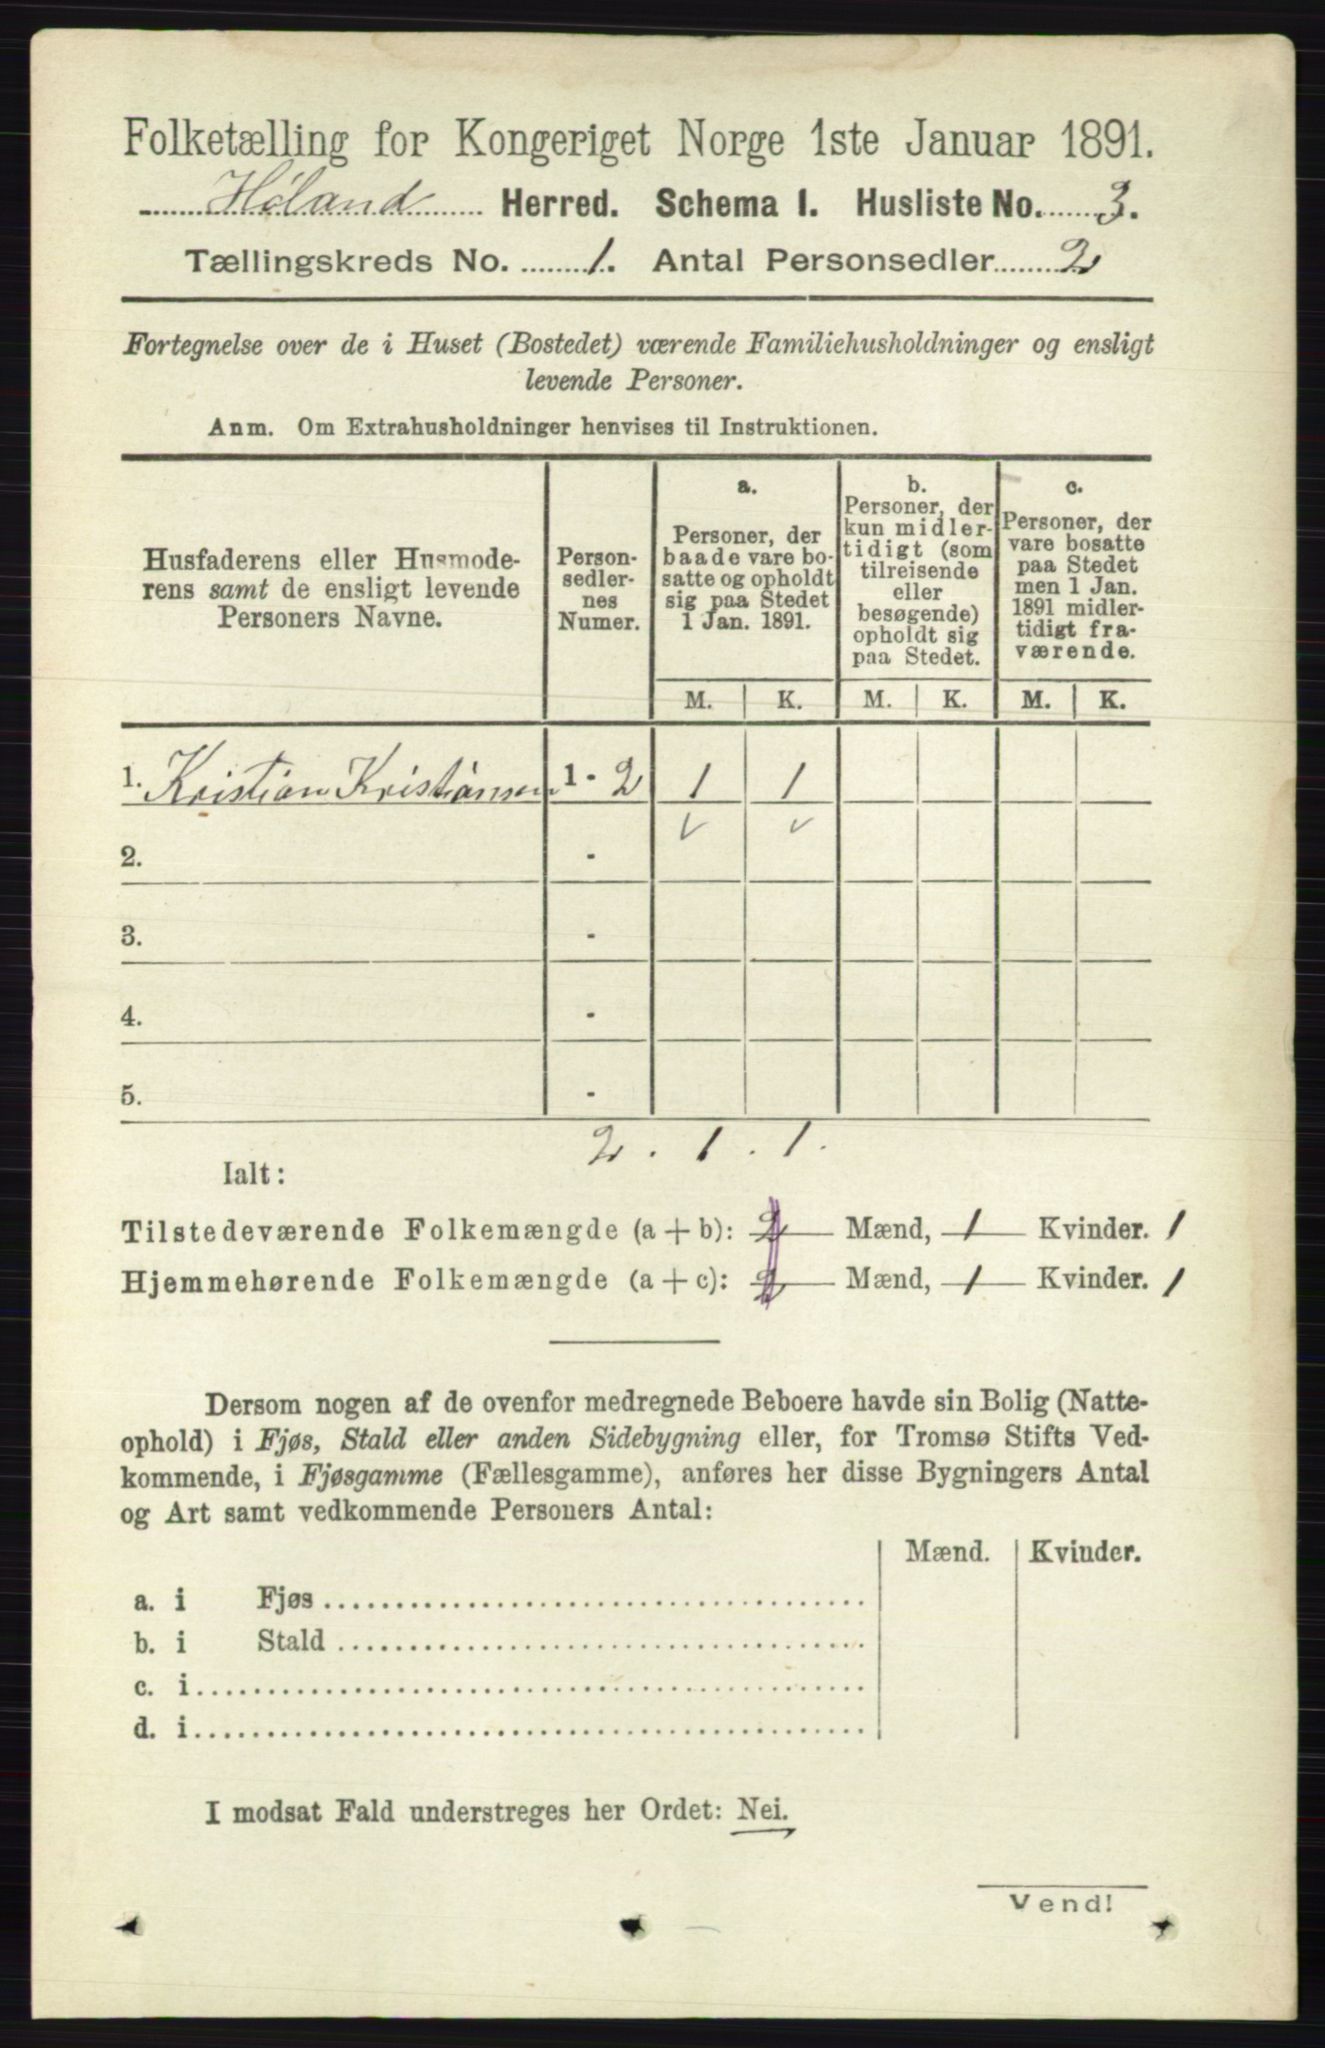 Folketælling for Kongeriget Norge 1ste Januar 1891.
Høland Herred. Schema 1. Husliste No. 3.
Tællingskreds No. 1. Antal Personsedler 2
Fortegnelse over de i Huset (Bostedet) værende Familiehusholdninger og ensligt
levende Personer.
Anm. Om Extrahusholdninger henvises til Instruktionen.
Husfaderens eller Husmode-
rens samt de ensligt levende
Personers Navne.
Person-
sedler-
nes
Numer.
a.
Personer, der
baade vare bo-
satte og opholdt
sig paa Stedet
1 Jan. 1891.
b.
Personer, der
kun midler-
tidigt (som
tilreisende
eller
besøgende)
opholdt sig
paa Stedet.
c.
Personer, der
vare bosatte
paa Stedet
men 1 Jan.
1891 midler-
tidigt fra-
værende.
M. K. M. K. M. K.
1. Kristian Kristiansen 1 - 2 1 1
2. -
3. -
4. -
5. -
2 . 1 . 1 .
Ialt:
Tilstedeværende Folkemængde (a + b): 2 Mænd, 1 Kvinder. 1
Hjemmehørende Folkemængde (a + c): 2 Mænd, 1 Kvinder. 1
Dersom nogen af de ovenfor medregnede Beboere havde sin Bolig (Natte-
ophold) i Fjøs, Stald eller anden Sidebygning eller, for Tromsø Stifts Ved-
kommende, i Fjøsgamme (Fællesgamme), anføres her disse Bygningers Antal
og Art samt vedkommende Personers Antal:
Mænd. Kvinder.
a. i Fjøs
b. i Stald
c. i
d. i
I modsat Fald understreges her Ordet: Nei.
Vend!